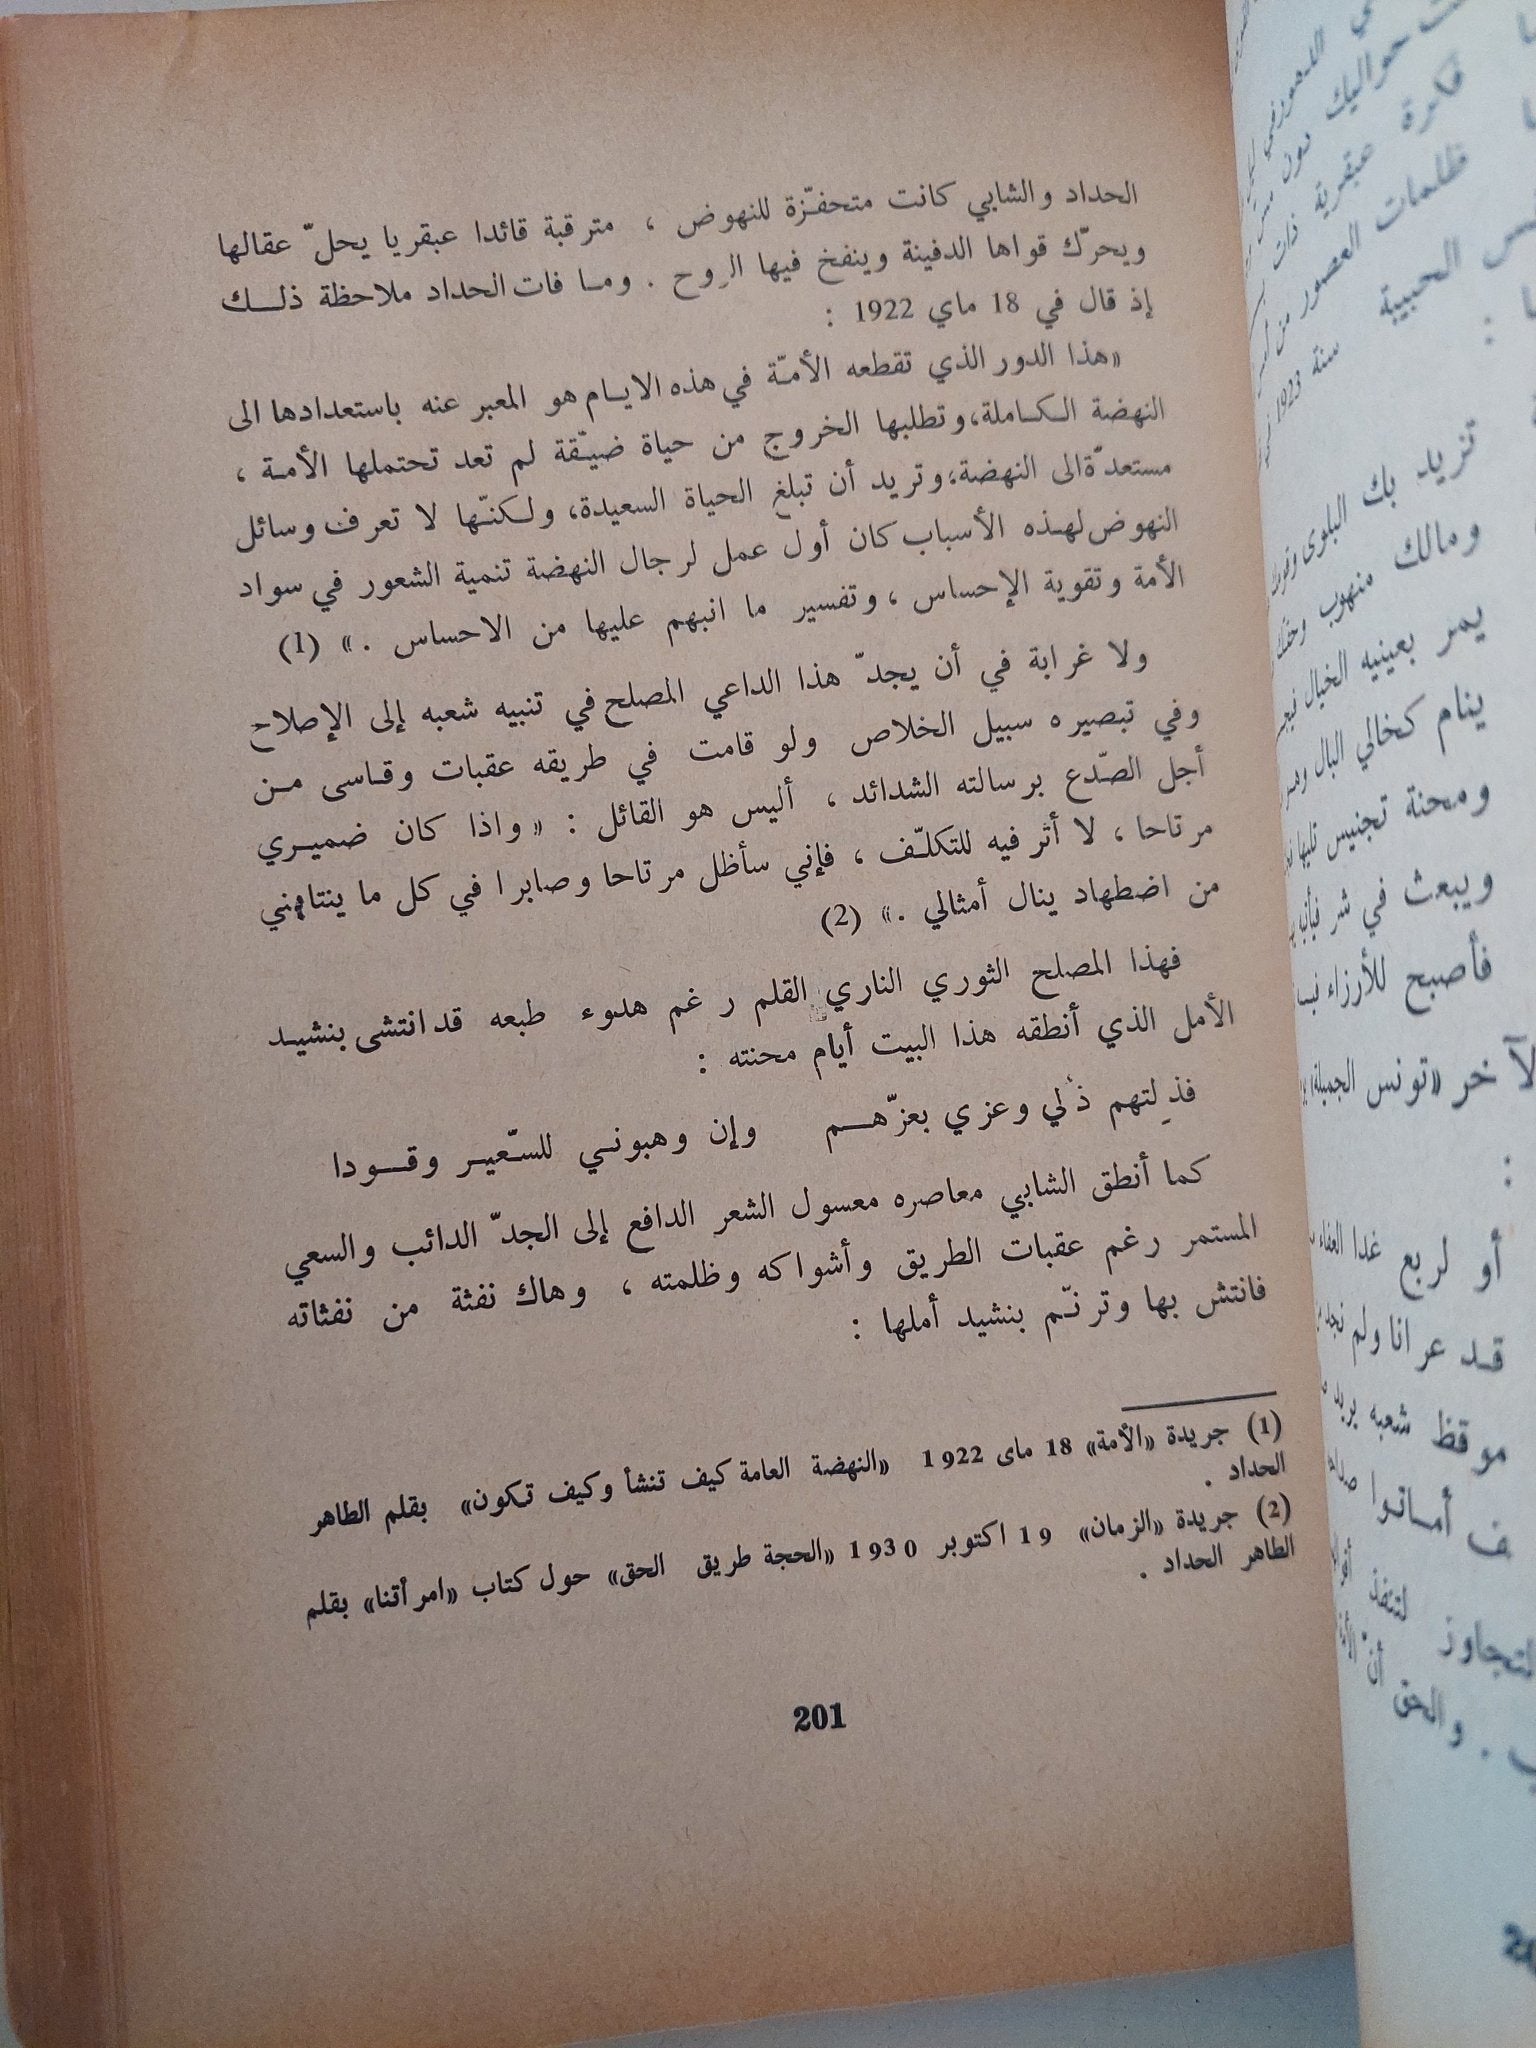 الحداد والشابي كانت متحفّزة للنهوض ، مترقبة قائدا عبقريا يحلّ عقالها
ويحرّك قواها الدفينة وينفخ فيها الروح . وما فات الحداد ملاحظة ذلك
إذ قال في 18 ماي 1922 :
«هذا الدور الذي تقطعه الأمّة في هذه الايام هو المعبر عنه باستعدادها الى
النهضة الكاملة، وتطلبها الخروج من حياة ضيّقة لم تعد تحتملها الأمة ،
مستعدّة الى النهضة، وتريد أن تبلغ الحياة السعيدة، ولكنّها لا تعرف وسائل
النهوض لهذه الأسباب كان أول عمل لرجال النهضة تنمية الشعور في سواد
الأمة وتقوية الإحساس ، وتفسير ما انبهم عليها من الاحساس .» (1)
ولا غرابة في أن يجدّ هذا الداعي المصلح في تنبيه شعبه إلى الإصلاح
وفي تبصيره سبيل الخلاص ولو قامت في طريقه عقبات وقاسى من
أجل الصّدع برسالته الشدائد ، أليس هو القائل : «واذا كان ضميري
مرتاحا ، لا أثر فيه للتكلّف ، فإني سأظل مرتاحا وصابرا في كل ما ينتابني
من اضطهاد ينال أمثالي .» (2)
فهذا المصلح الثوري الناري القلم رغم هدوء طبعه قد انتشى بنشيد
الأمل الذي أنطقه هذا البيت أيام محنته :
فذلتهم ذلي وعزي بعزّهم وإن وهبوني للسّعير وقودا
كما أنطق الشابي معاصره معسول الشعر الدافع إلى الجدّ الدائب والسعي
المستمر رغم عقبات الطريق وأشواكه وظلمته ، وهاك نفثة من نفثاته
فانتش بها وترنّم بنشيد أملها :
(1) جريدة «الأمة» 18 ماى 1922 «النهضة العامة كيف تنشأ وكيف تكون» بقلم الطاهر
الحداد .
(2) جريدة «الزمان» 19 اكتوبر 1930 «الحجة طريق الحق» حول كتاب «امرأتنا» بقلم
الطاهر الحداد .
201
حواليك دون
عبقرية ذات
ظلمات العصور من
الحبيبة سنة 1923
تزيد بك البلوى
ومالك منهوب
يمر بعينيه الخيال
ينام كخالي البال
ومحنة تجنيس
ويبعث في شر
فأصبح للأرزاء
لآخر «تونس الجميلة»
:
أو لربع غدا العفاء
قد عرانا ولم نجد
موقظ شعبه يريد
ف أماتوا
لتجاوز لتنفذ
. والحق أن